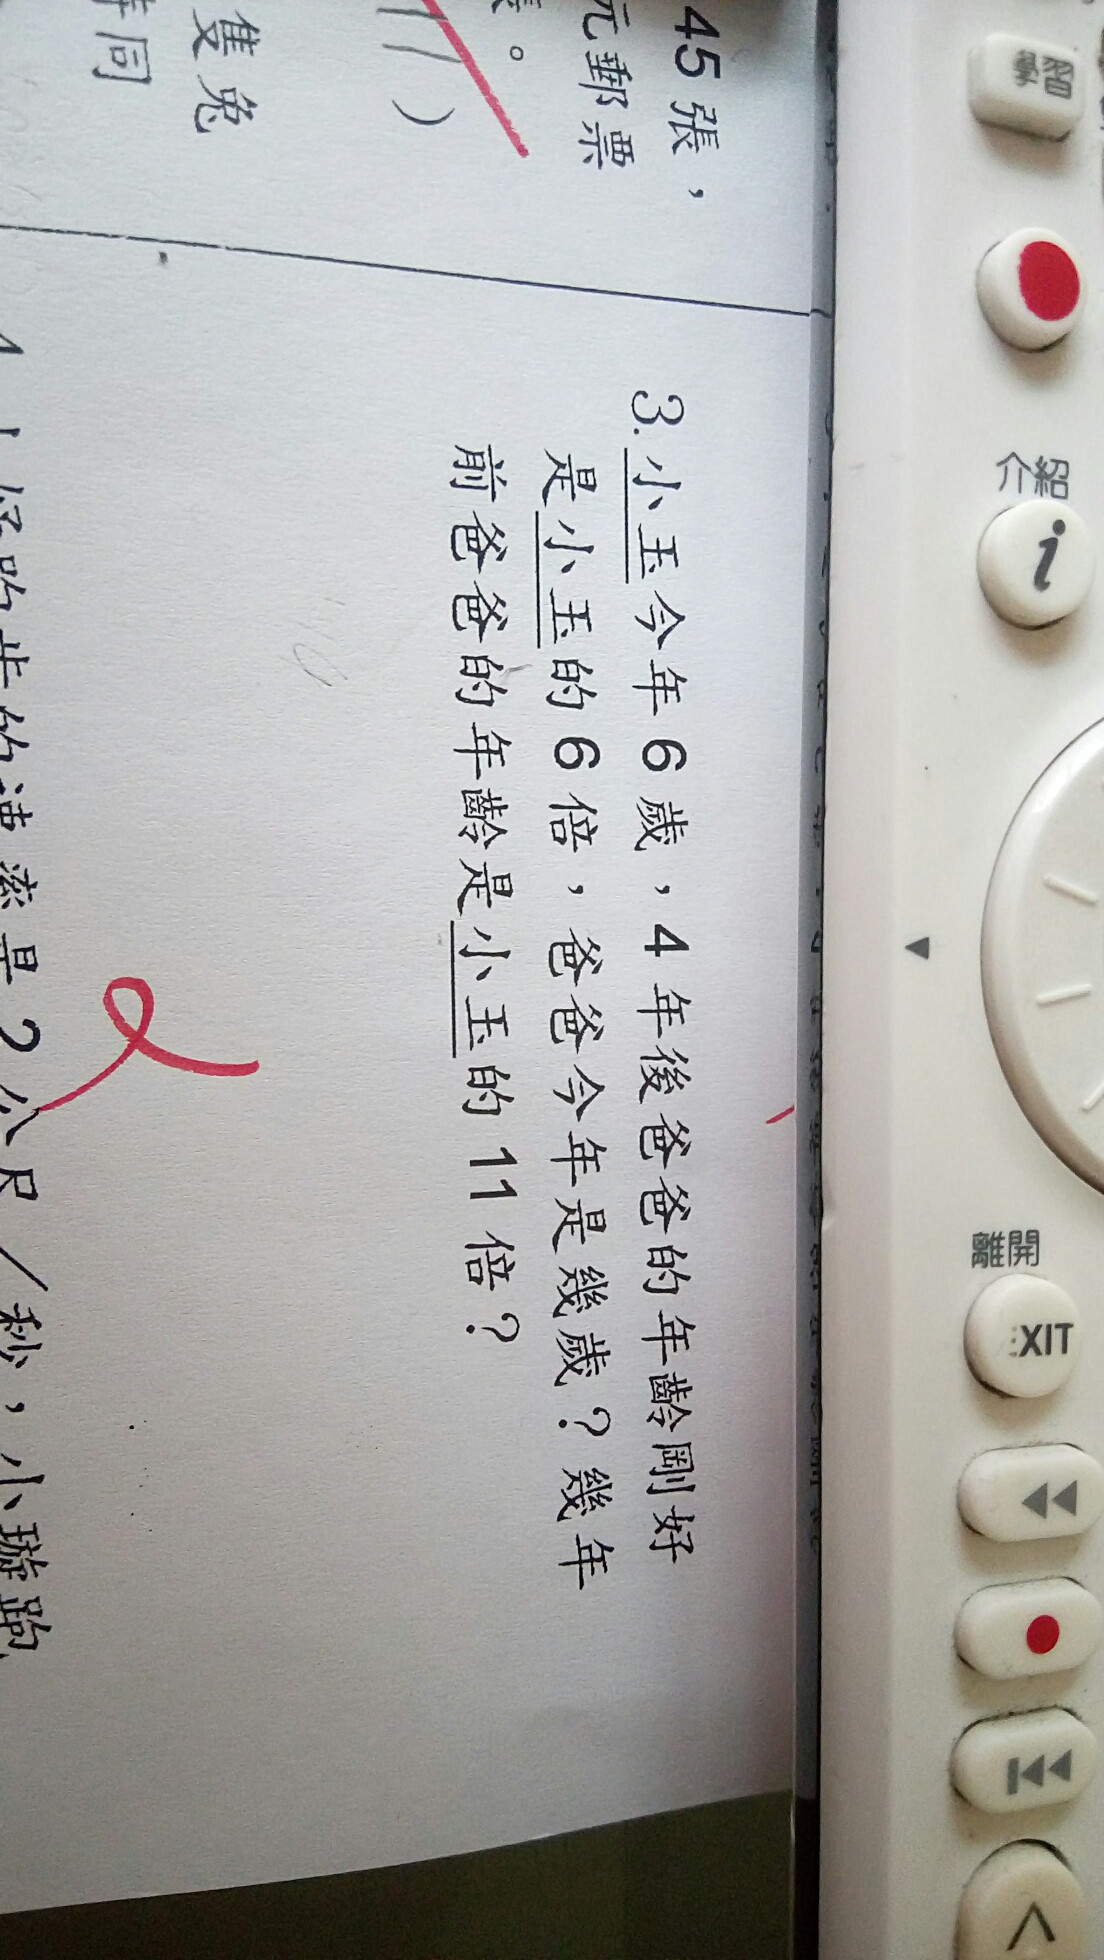 45張，
元郵票
。
11）
隻兔
同
3.小玉今年6歲，4年後爸爸的年齡剛好
是小玉的6倍，爸爸今年是幾歲？幾年
前爸爸的年齡是小玉的11倍？
跑步的速率是2公尺／秒，小璇跑
學習
介紹
i
離開
EXIT